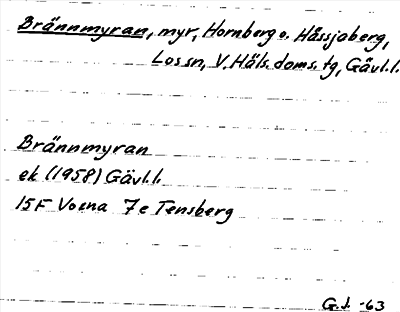 Brännmyran, myr, Hornberg o. Håssjaberg,
Los sn, V. Häls. doms. tg, Gävl.l.
Brännmyran
ek (1958) Gävl.l.
15F Voxna 7e Tensberg
G.J. -63